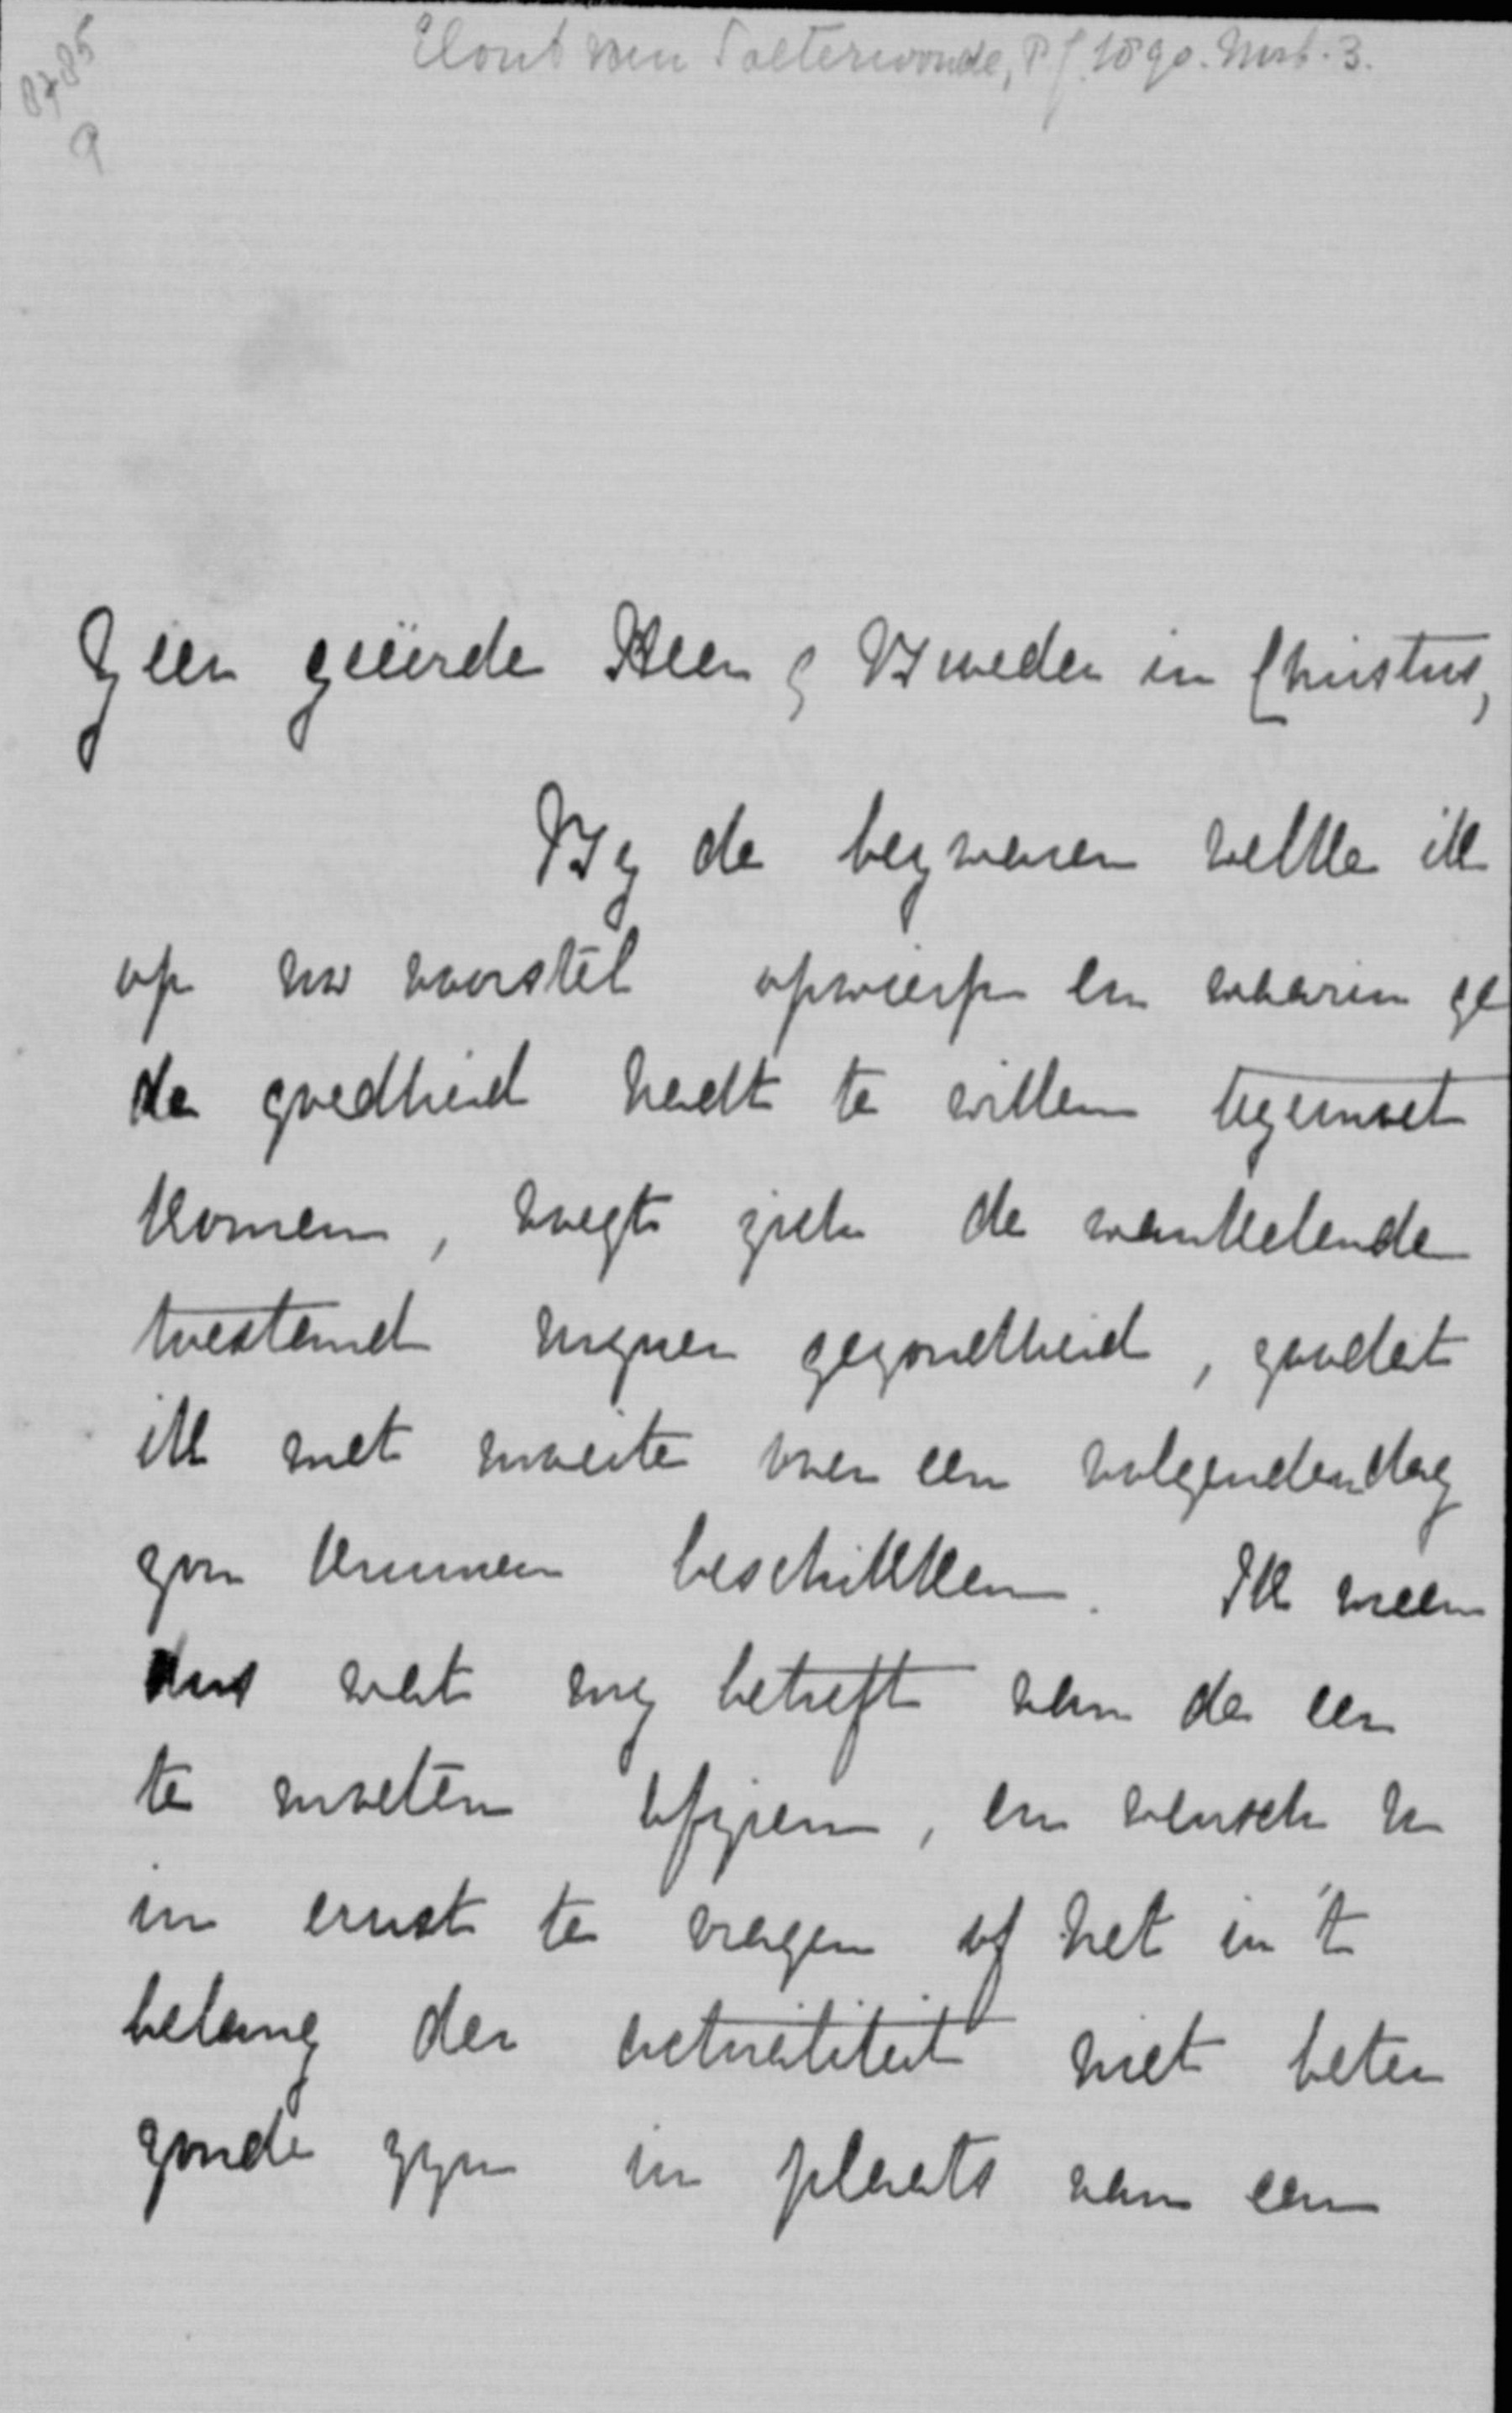 Elout van Soeterwoude, P.J. 1890. Mrt. 3.
8785
9
Zeer geëerde Heer & Broeder in Christus,
By de bezwaren welke ik
op uw voorstel opwierp en waarin ge
de goedheid hadt te willen tegemoet
komen, voegt zich de wankelende
toestand myner gezondheid, zoodat
ik met moeite over een volgenden dag
zou kunnen beschikken. Ik meen
dus wat my betreft van de eer
te moeten afzien, en wensch u
in ernst te vragen of het in 't
belang der actualiteit niet beter
zoude zyn in plaats van een